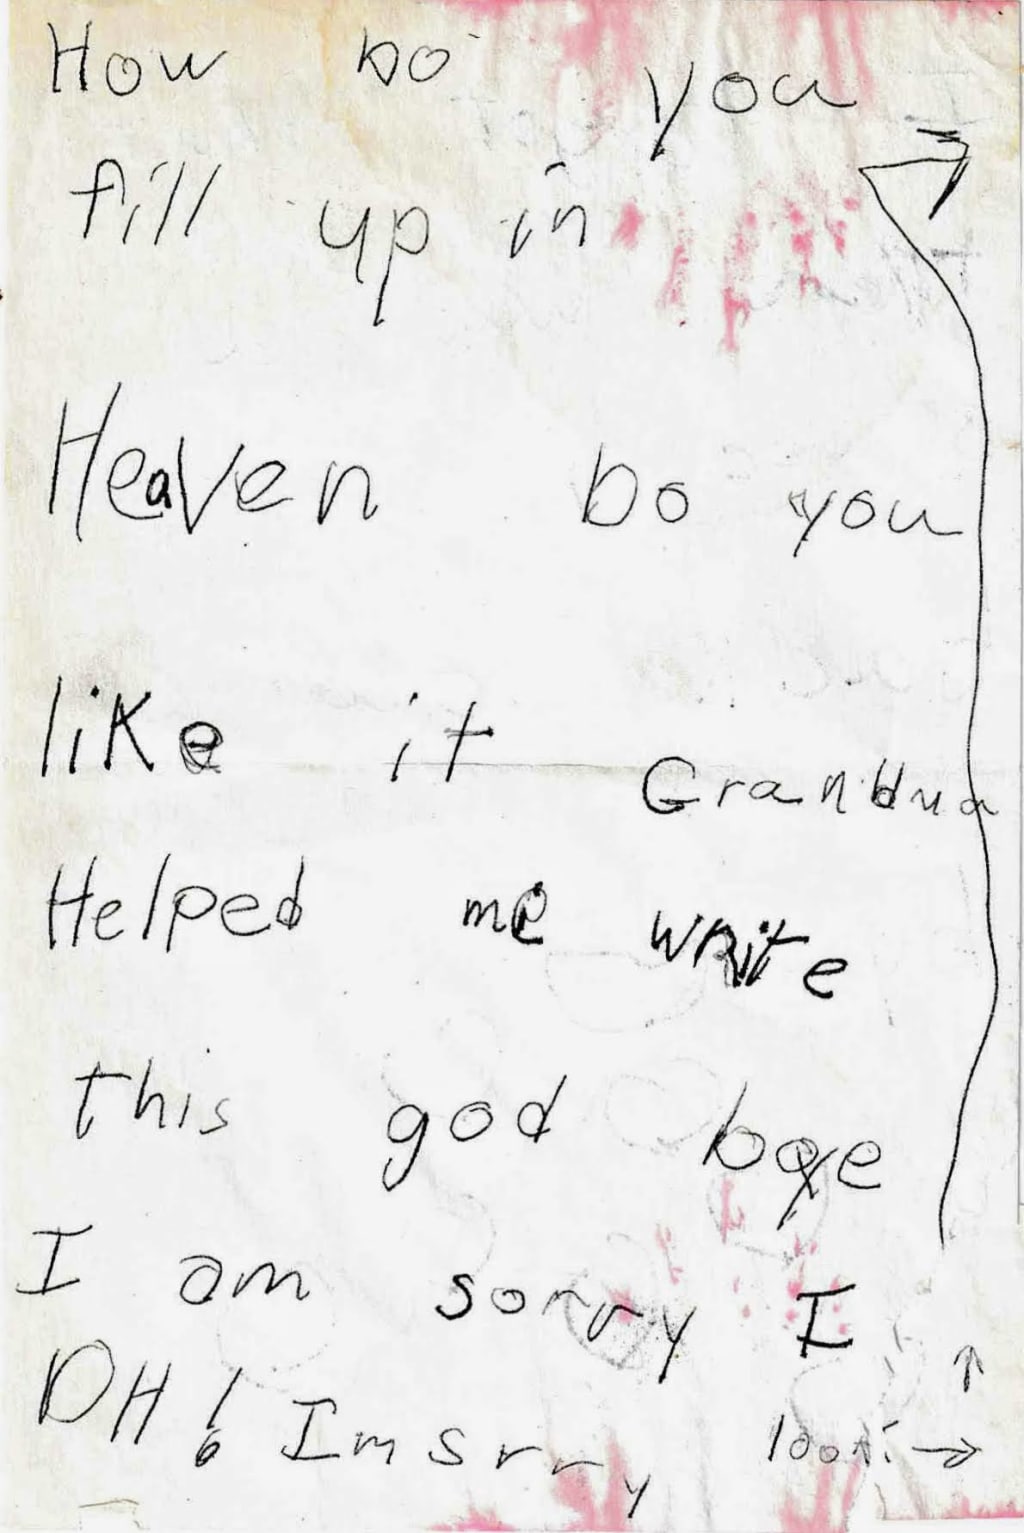 How Do you
fill up in
Heaven Do you
like it Grandma
Helped me write
this god bye
I am sorry I
OH! Im srry look: